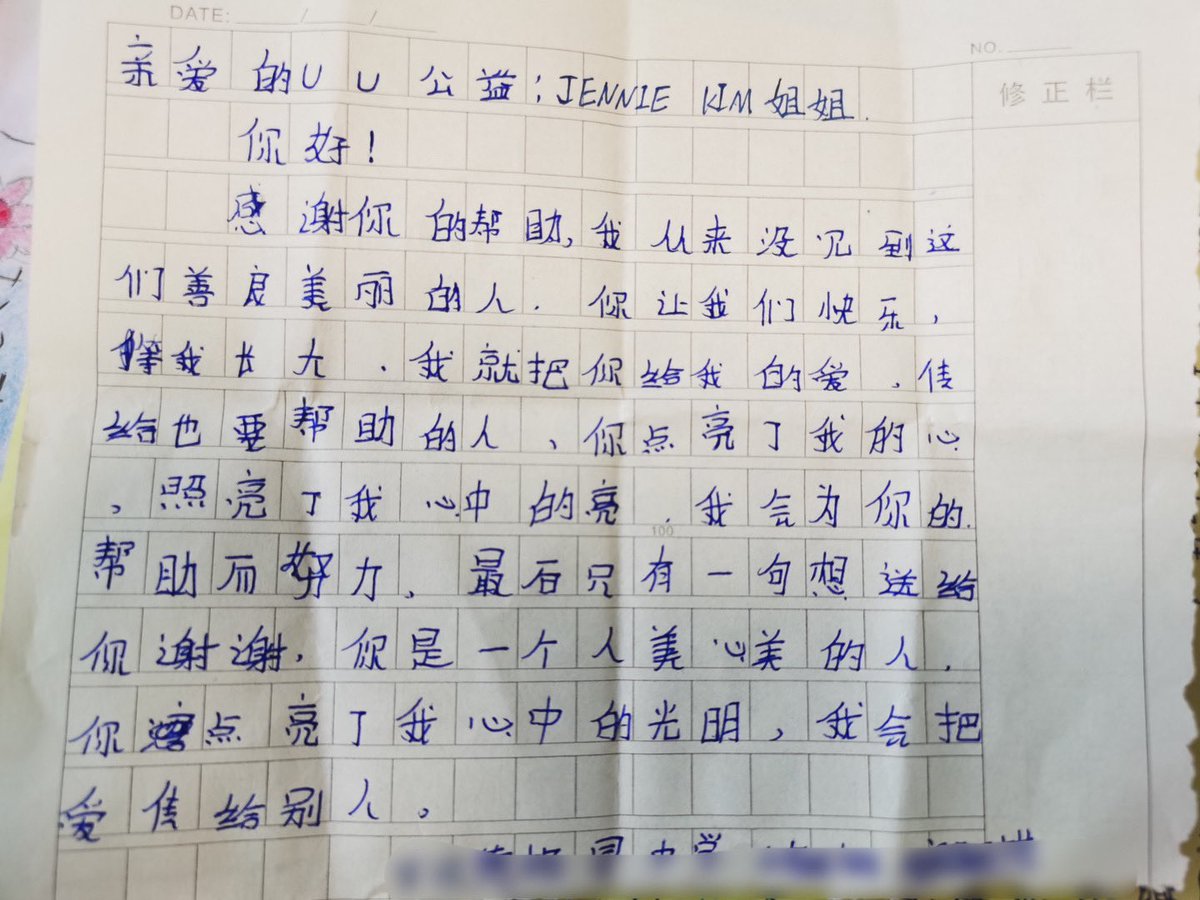 DATE: / /
NO.
修正栏
亲爱的UU公益；JENNIE KIM姐姐.
你好！
感谢你的帮助,我从来没见到这
们善良美丽的人.你让我们快乐，
等我长大.我就把你给我的爱、传
给也要帮助的人、你点亮了我的心
，照亮了我心中的亮.我会为你的.
100
帮助而努力.最后只有一句想送给
你谢谢,你是一个人美心美的人.
你点亮了我心中的光明，我会把
爱传给别人。